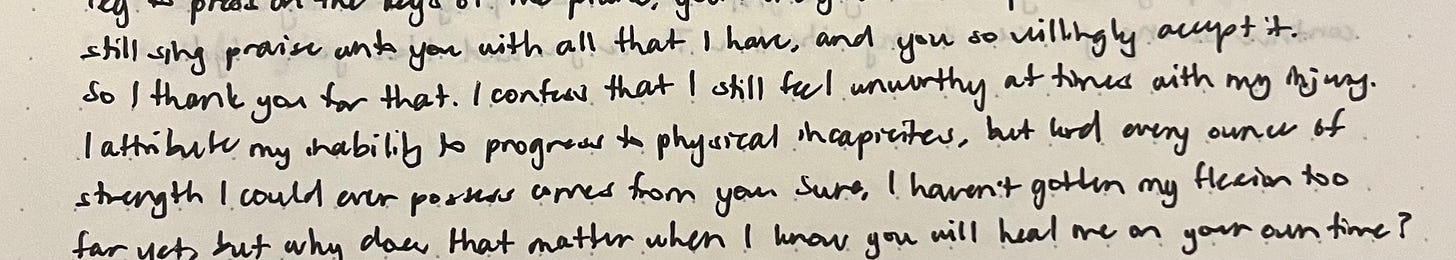 to press on the keys of the piano,
still sing praise unto you with all that I have, and you so willingly accept it.
So I thank you for that. I confess that I still feel unworthy at times with my injury.
I attribute my inability to progress to physical incapicities, but lord every ounce of
strength I could ever possess comes from you. Sure, I haven't gotten my flexion too
far yet, but why does that matter when I know you will heal me on your own time?